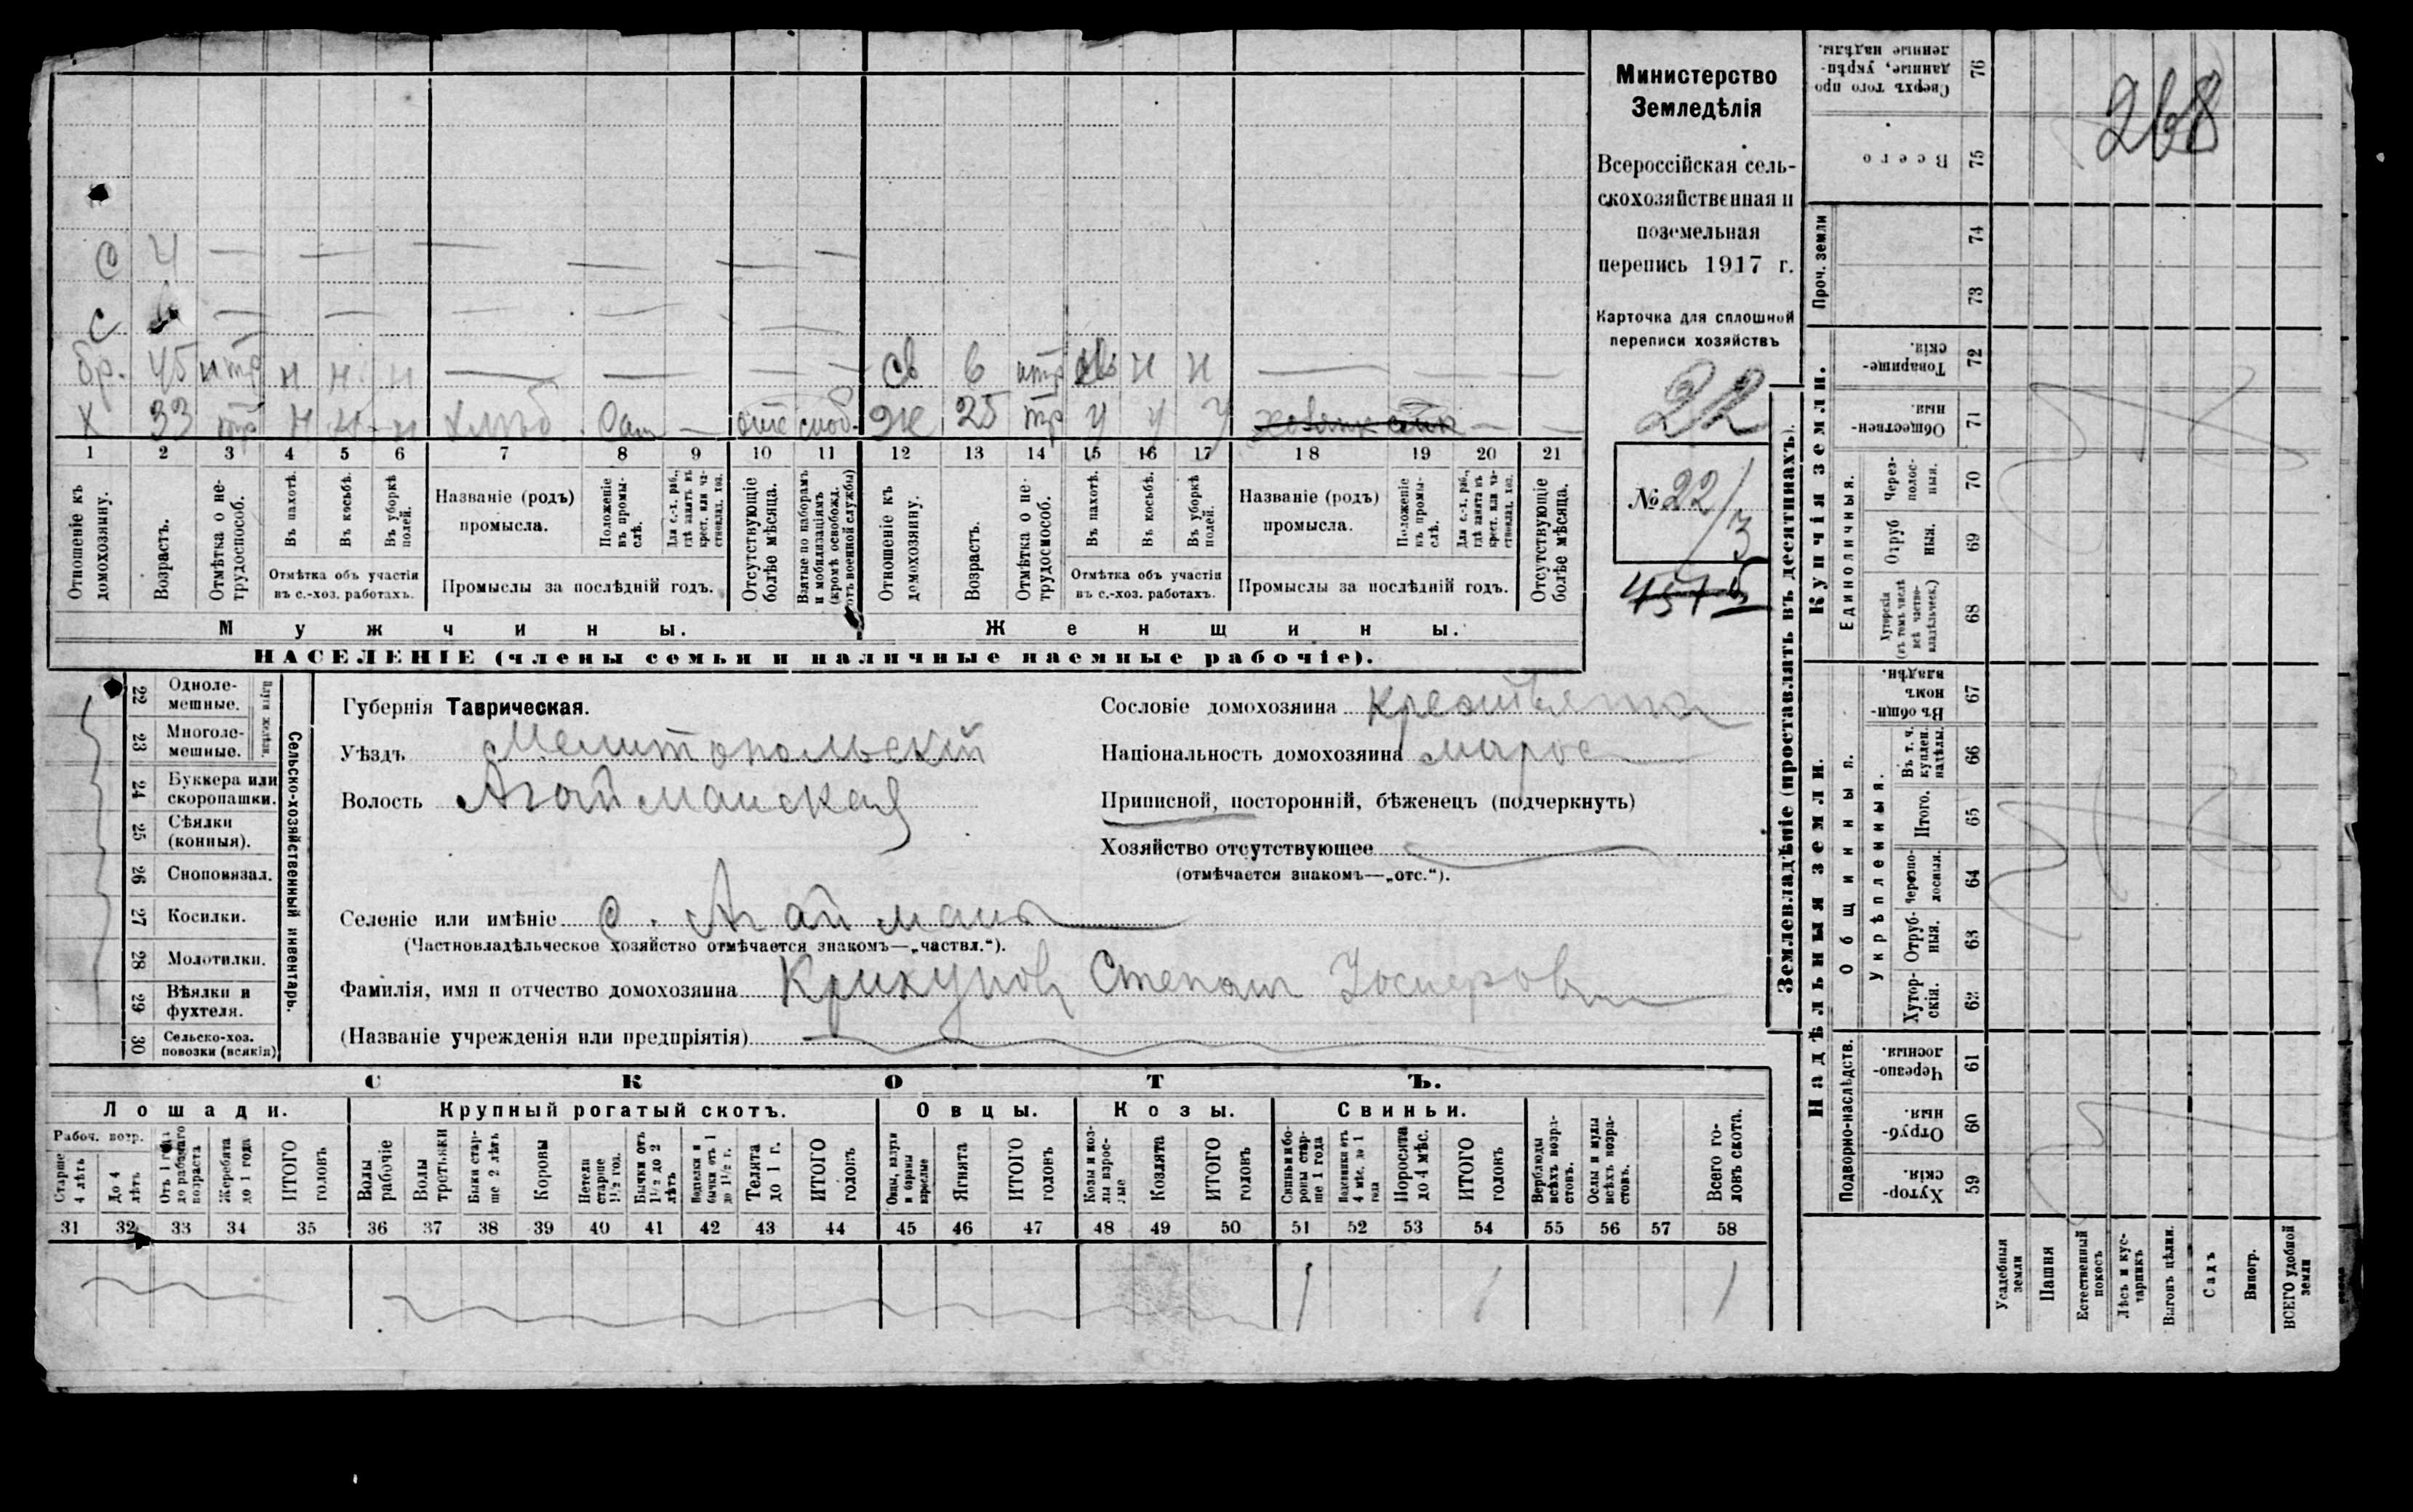 268
Министерство
Земледѣлія
Всероссійская сель-
скохозяйственная и
поземельная
перепись 1917 г.
Карточка для сплошной
переписи хозяйствъ
22
№ 22/3
С 4 — — — — — —
С — — — — — —
бр. 45 нтр н н н — — — — св 6 нтр н н — — —
Х 33 тр н н н хлѣб — отс моб. ж 25 тр у у у — —
1 2 3 4 5 6 7 8 9 10 11 12 13 14 15 16 17 18 19 20 21
Отношеніе къ домохозяину.
Возрастъ.
Отмѣтка о не-трудоспособ.
Въ пахотѣ.
Въ косьбѣ.
Въ уборкѣ полей.
Отмѣтка объ участіи въ с.-хоз. работахъ.
Названіе (родъ) промысла.
Положеніе въ промы-слѣ.
Для с.-х. раб., гдѣ занятъ въ крест. или ча-стновлад. хоз.
Промыслы за послѣдній годъ.
Отсутствующіе болѣе мѣсяца.
Взятые по наборамъ и мобилизаціямъ (кромѣ освобожд. отъ военной службы)
Отношеніе къ домохозяину.
Возрастъ.
Отмѣтка о не-трудоспособ.
Въ пахотѣ.
Въ косьбѣ.
Въ уборкѣ полей.
Отмѣтка объ участіи въ с.-хоз. работахъ.
Названіе (родъ) промысла.
Положеніе въ промы-слѣ.
Для с.-х. раб., гдѣ занята въ крест. или ча-стновлад. хоз.
Промыслы за послѣдній годъ.
Отсутствующіе болѣе мѣсяца.
Мужчины. Женщины.
НАСЕЛЕНІЕ (члены семьи и наличные наемные рабочіе).
Сельско-хозяйственный инвентарь.
22 Одноле-мешные.
23 Многоле-мешные.
24 Буккера или скоропашки.
25 Сѣялки (конныя).
26 Сноповязал.
27 Косилки.
28 Молотилки.
29 Вѣялки и фухтеля.
30 Сельско-хоз. повозки (всякія)
Губернія Таврическая.
Уѣздъ Мелитопольскій
Волость Агайманская
Сословіе домохозяина крестьянинъ
Національность домохозяина малорос
Приписной, посторонній, бѣженецъ (подчеркнуть)
Хозяйство отсутствующее
(отмѣчается знакомъ—„отс.“).
Селеніе или имѣніе с. Агайманъ
(Частновладѣльческое хозяйство отмѣчается знакомъ—„частвл.“).
Фамилія, имя и отчество домохозяина Крикунов Степан
(Названіе учрежденія или предпріятія)
СКОТЪ.
Лошади. Крупный рогатый скотъ. Овцы. Козы. Свиньи.
Рабоч. возр.
Старше 4 лѣтъ
До 4 лѣтъ
Отъ 1 года до рабочаго возраста
Жеребята до 1 года
ИТОГО головъ
Волы рабочіе
Волы третьяки
Быки стар-ше 2 лѣтъ
Коровы
Нетели старше 1½ год.
Бычки отъ 1½ до 2 лѣтъ
бычки отъ 1 до 1½ г.
Телята до 1 г.
ИТОГО головъ
Овцы, валухи и бараны взрослые
Ягнята
ИТОГО головъ
Козы и коз-лы взрос-лые
Козлята
ИТОГО головъ
Свиньи и бо-роны стар-ше 1 года
Подсвинки отъ 4 мѣс. до 1 года
Поросята до 4 мѣс.
ИТОГО головъ
Верблюды всѣхъ возра-стовъ.
Ослы и мулы всѣхъ возра-стовъ.
Всего го-ловъ скота.
31 32 33 34 35 36 37 38 39 40 41 42 43 44 45 46 47 48 49 50 51 52 53 54 55 56 57 58
1 1 1
Землевладѣніе (проставлять въ десятинахъ).
Купчія земли.
Надѣльныя земли.
Сверхъ того про данные, укрѣп-ленные надѣлы. 76
Всего 75
Проч. земли 74 73
Товарище-скія. 72
Обществен-ныя. 71
Единоличныя.
Черезполос-ныя. 70
Отруб ныя. 69
Хуторскія (въ томъ числѣ всѣ частно-владѣльческ.) 68
Общинныя.
Въ общин-номъ владѣн. 67
Укрѣпленныя.
Въ т. ч. куплен. надѣлы. 66
Итого. 65
Черезпо-лосныя. 64
Отруб-ныя. 63
Хутор-скія. 62
Подворно-наслѣдств.
Черезпо-лосныя. 61
Отруб-ныя. 60
Хутор-скія. 59
Усадебныя земли
Пашня
Естественный покосъ
Лѣсъ и кус-тарникъ
Выгонъ цѣлин.
Садъ
Виногр.
ВСЕГО удобной земли